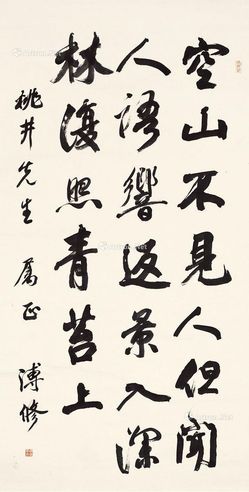 空山不見人但聞
人語響返景入深
林復照青苔上
桃井先生 属正 溥修